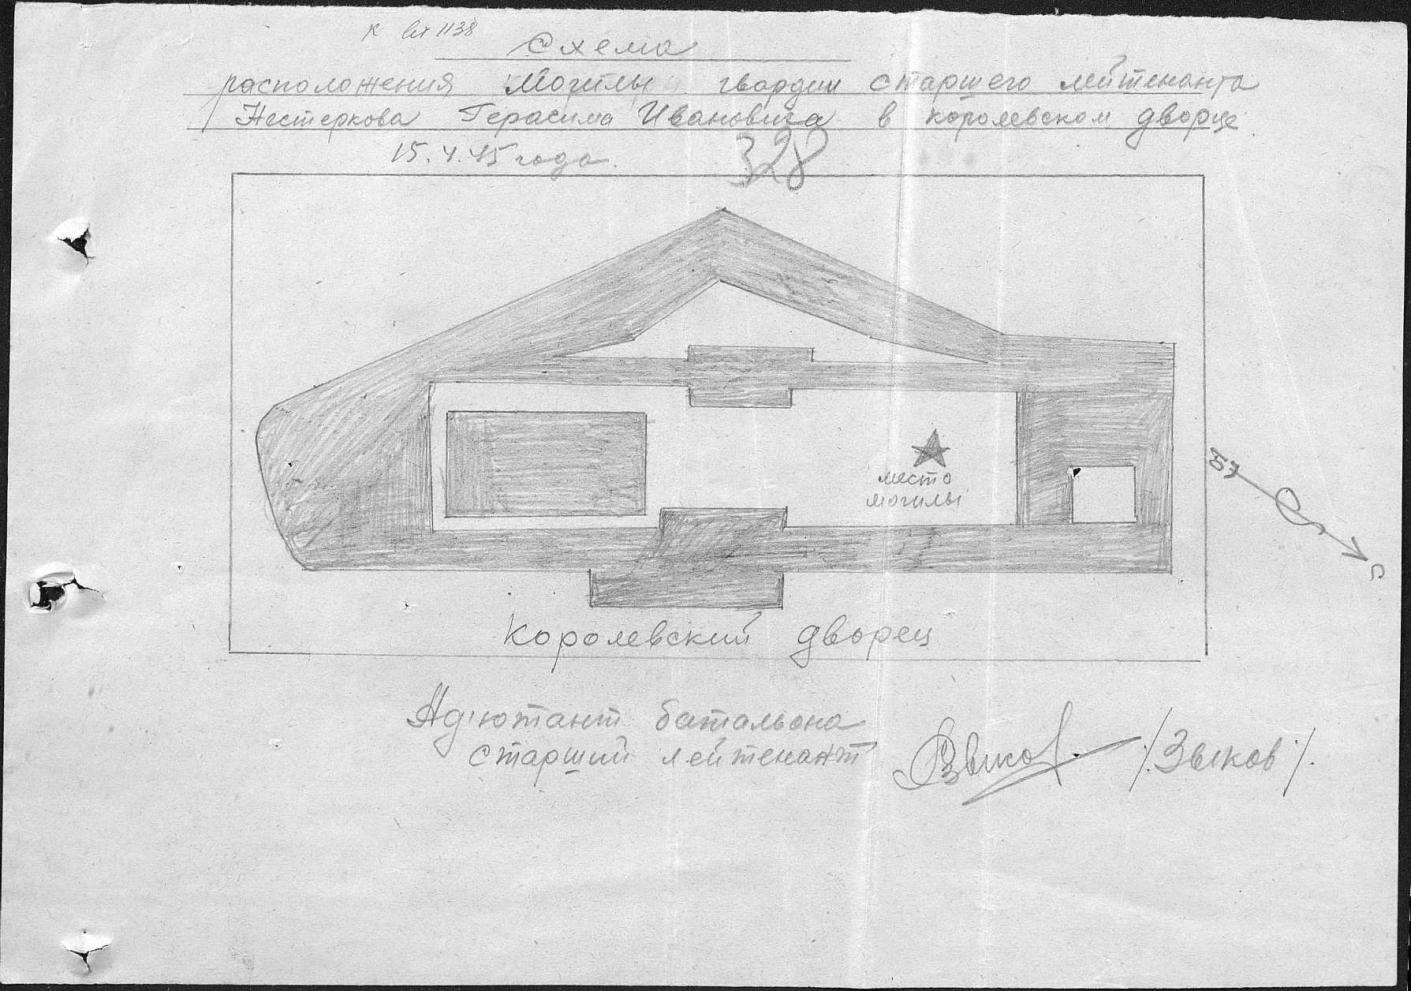 К вх 1138
Схема
расположения Могилы гвардии старшего лейтенанта
Нестеркова Герасима Ивановича в королевском дворце
15.4.45 года.
328
место
могилы
Ю
С
Королевский дворец
Адъютант батальона
старший лейтенант
/Зыков/.